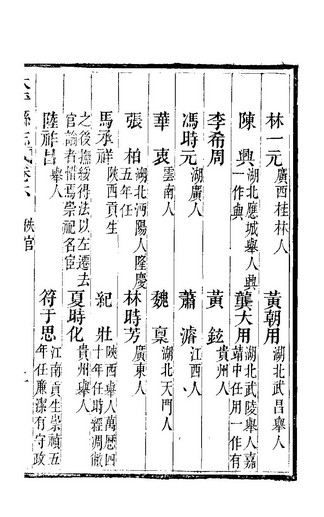 林一元廣西桂林人
黃朝用湖北武昌舉人
陳興湖北應城舉人興一作與
龔大用湖北武陵舉人嘉靖中任用一作有
李希周
黃鉉貴州人
馮時元湖廣人
蕭濬江西人
華衷雲南人
魏稟湖北天門人
張柏湖北沔陽人隆慶五年任
林時芳廣東人
馬承祥陝西貢生
紀壯陝西舉人萬歷四十年任時經調徹
之後撫綏得法以左遷去官論者惜焉崇祀名宦
夏時化貴州舉人
陸祥昌舉人
符于思江南貢生崇禎五年任廉潔有守政
秩官